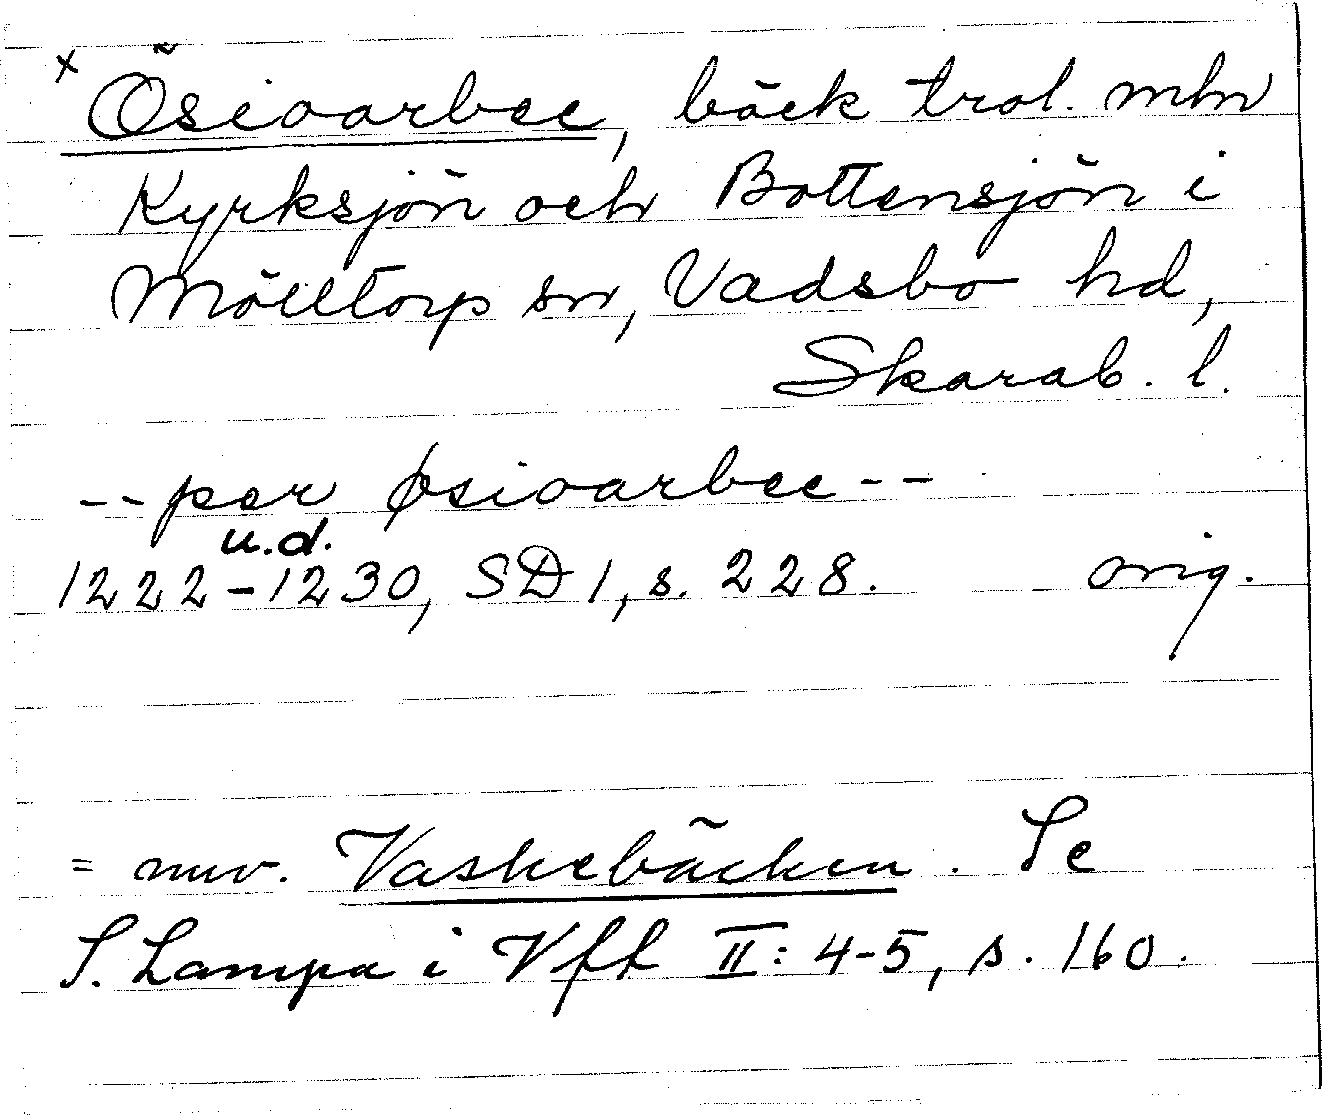 x Ösioarbec, bäck trol. mln
Kyrksjön och Bottensjön i
Mölltorp sn, Vadsbo hd,
Skarab. l.
-- per øsioarbec --
u.d.
1222-1230, SD 1, s. 228. orig.
= nuv. Vaskebäcken. Se
S. Lampa i Vff II: 4-5, s. 160.